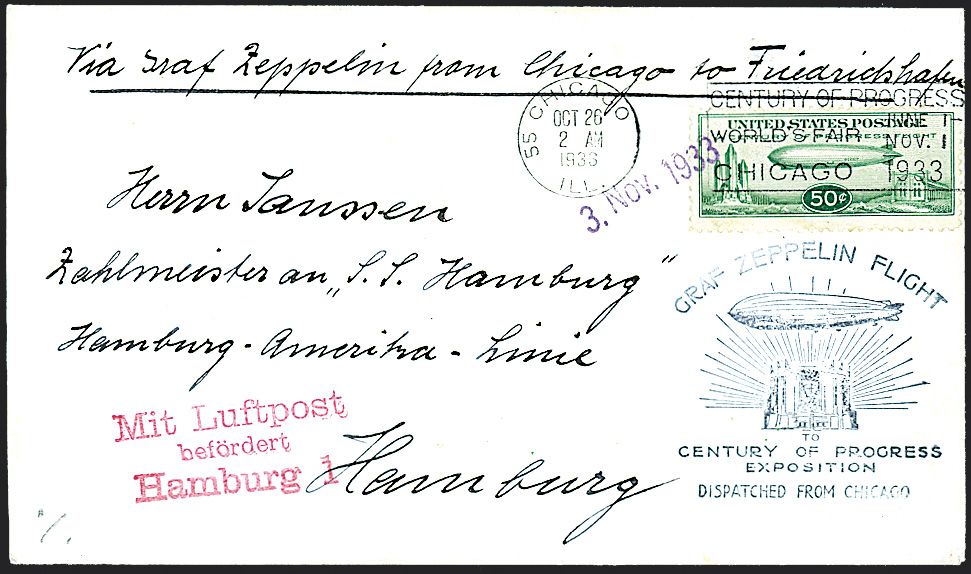 Via Graf Zeppelin from Chicago to Friedrichshafen
55 CHICAGO ILL.
OCT 26
2 AM
1933
3. Nov. 1933
CENTURY OF PROGRESS
WORLD'S FAIR
CHICAGO
JUNE 1-
NOV. 1
1933
UNITED STATES POSTAGE
A CENTURY OF PROGRESS FLIGHT
50¢
Herrn Janssen
Zahlmeister an „S.S. Hamburg"
Hamburg-Amerika-Linie
Hamburg
Mit Luftpost
befördert
Hamburg 1
GRAF ZEPPELIN FLIGHT
TO
CENTURY OF PROGRESS
EXPOSITION
DISPATCHED FROM CHICAGO